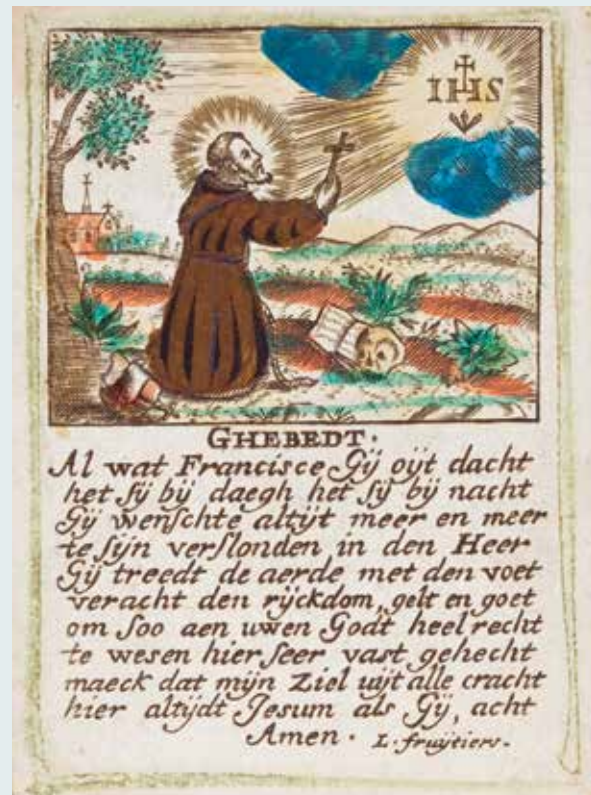 IHS
GHEBEDT.
Al wat Francisce Gij oijt dacht
het sij bij daegh het sij bij nacht
Gij wenschte altijt meer en meer
te sijn verslonden in den Heer
Gij treedt de aerde met den voet
veracht den rijckdom, gelt en goet
om soo aen uwen Godt heel recht
te wesen hier seer vast gehecht
maeck dat mijn Ziel uijt alle cracht
hier altijdt Jesum als Gij, acht
Amen. L. fruijtiers.